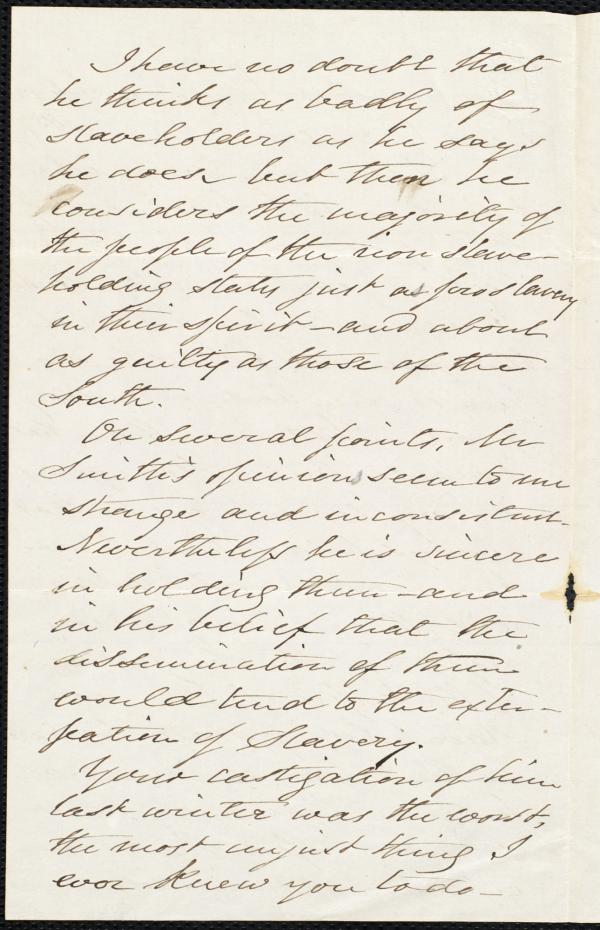 I have no doubt that
he thinks as badly of
slaveholders as he says
he does but then he
considers the majority of
the people of the non slave-
holding states just as proslavery
in their spirit - and about
as guilty as those of the
South.
On several points, Mr
Smith's opinions seem to me
strange and inconsistent.
Nevertheless he is sincere
in holding them - and
in his belief that the
dissemination of them
would tend to the exter-
pation of Slavery.
Your castigation of him
last winter was the worst,
the most unjust thing I
ever knew you to do -